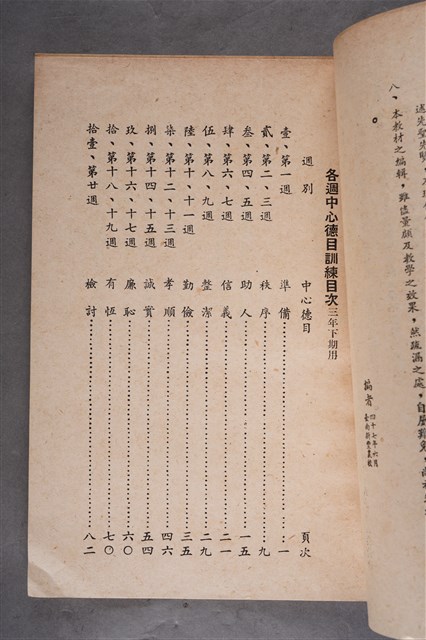 八、本教材之編輯，雖儘量顧及教學之效果，然疏漏之處，自屬難免，
編者
四十七年六月
各週中心德目訓練目次 三年下期用
週別 中心德目 頁次
壹、第一週 準備 一
貳、第二、三週 秩序 九
叁、第四、五週 助人 一五
肆、第六、七週 信義 二一
伍、第八、九週 整潔 二九
陸、第十、十一週 勤儉 三五
柒、第十二、十三週 孝順 四六
捌、第十四、十五週 誠實 五四
玖、第十六、十七週 廉恥 六〇
拾、第十八、十九週 有恆 七〇
拾壹、第廿週 檢討 八二